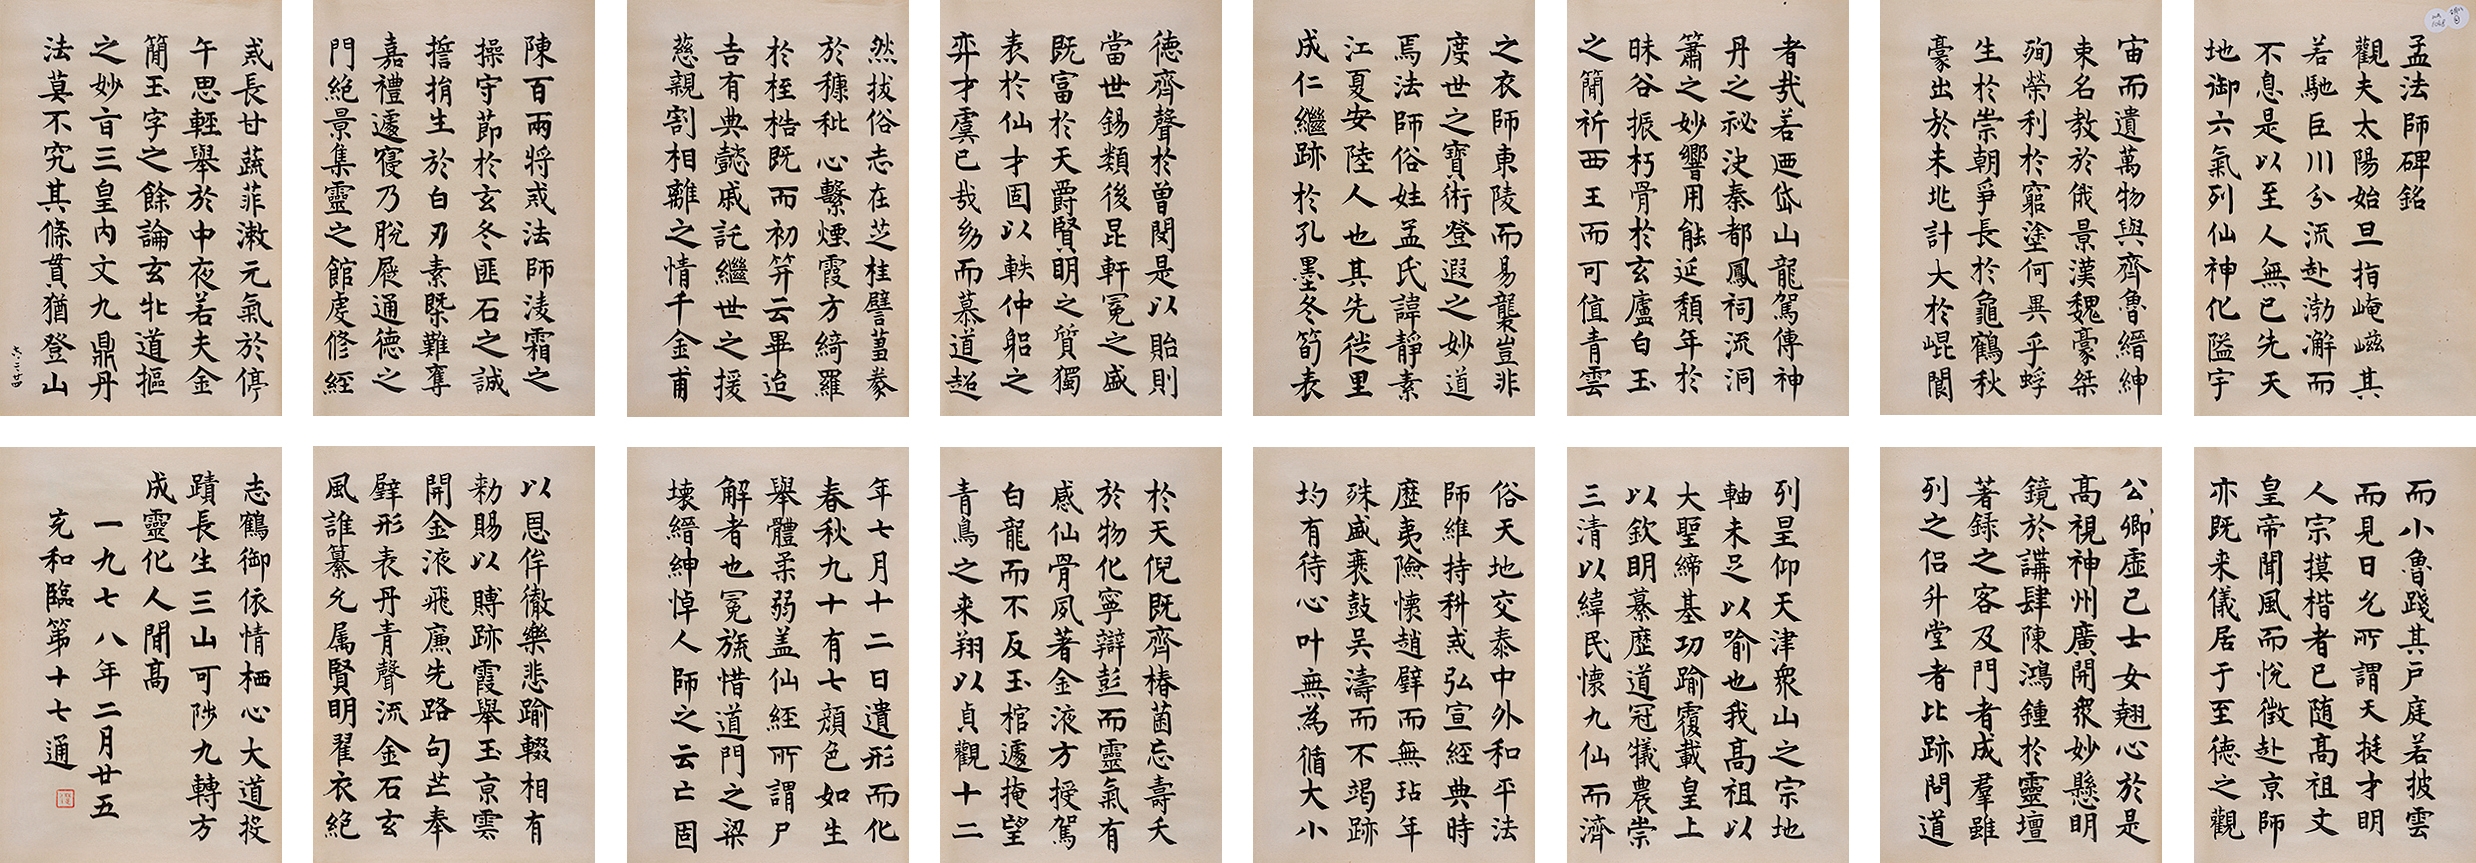 孟法師碑銘
觀夫太陽始旦指崦嵫其
若馳巨川分流赴渤澥而
不息是以至人無已先天
地御六氣列仙神化隘宇
宙而遺萬物與齊魯縉紳
束名教於俄景漢魏豪桀
殉榮利於窮塗何異乎蜉
生於崇朝爭長於龜鶴秋
豪出於未兆計大於崐閬
者哉若迺岱山龍駕傳神
丹之祕決秦都鳳祠流洞
簫之妙響用能延頹年於
昧谷振朽骨於玄廬白玉
之簡祈西王而可值青雲
之衣師東陵而易襲豈非
度世之寶術登遐之妙道
焉法師俗姓孟氏諱靜素
江夏安陸人也其先徙里
成仁繼跡於孔墨冬筍表
德齊聲於曾閔是以貽則
當世錫類後昆軒冕之盛
既富於天爵賢明之質獨
表於仙才固以軼仲躬之
弈才虞已哉幼而慕道超
然拔俗志在芝桂譬蒭豢
於穅秕心繫煙霞方綺羅
於桎梏既而初笄云畢迨
吉有典懿戚託繼世之援
慈親割相離之情千金甫
陳百兩將戒法師凌霜之
操守節於玄冬匪石之誠
誓捐生於白刃素槩難奪
嘉禮遽寢乃脫屣通德之
門絕景集靈之館虔修經
戒長甘蔬菲漱元氣於停
午思輕舉於中夜若夫金
簡玉字之餘論玄牝道樞
之妙旨三皇內文九鼎丹
法莫不究其條貫猶登山
六.三.廿四
而小魯踐其戶庭若披雲
而見日允所謂天挺才明
人宗摸楷者已随高祖文
皇帝聞風而悅徵赴京師
亦既来儀居于至德之觀
公卿虛己士女翹心於是
高視神州廣開衆妙懸明
鏡於講肆陳鴻鍾於靈壇
著錄之客及門者成羣雖
列之侶升堂者比跡問道
列呈仰天津眾山之宗地
軸未足以喻也我高祖以
大聖締基功踰覆載皇上
以欽明纂歷道冠犧農崇
三清以緯民懷九仙而濟
俗天地交泰中外和平法
師維持科戒弘宣經典時
歷夷險懷趙璧而無玷年
殊盛衰鼓吳濤而不竭跡
均有待心叶無為循大小
於天倪既齊椿菌忘壽夭
於物化寧辯彭而靈氣有
感仙骨夙著金液方授駕
白龍而不反玉棺遽掩望
青鳥之来翔以貞觀十二
年七月十二日遺形而化
春秋九十有七顏色如生
舉體柔弱盖仙經所謂尸
解者也冕旒惜道門之梁
壞縉紳悼人師之云亡固
以恩侔徹樂悲踰輟相有
勑賜以賻跡霞舉玉京雲
開金液飛廉先路句芒奉
辟形表丹青聲流金石玄
風誰纂允属賢明翟衣絕
志鶴御依情栖心大道投
蹟長生三山可陟九轉方
成靈化人間高
一九七八年二月廿五
充和臨第十七通